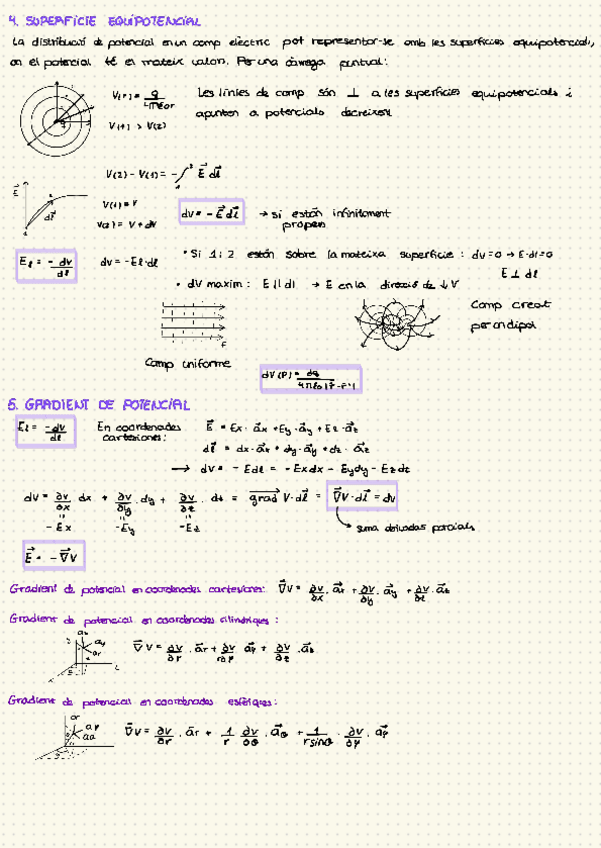 4. SUPERFÍCIE EQUIPOTENCIAL
La distribució de potencial en un camp elèctric pot representar-se amb les superfícies equipotencials,
on el potencial té el mateix valor. Per una càrrega puntual:
V(r) = q / 4πε0r
Les línies de camp són ⊥ a les superfícies equipotencials i
apunten a potencials decreixent
V(1) > V(2)
V(2) - V(1) = -∫₁² E⃗ dl⃗
V(1) = V
V(2) = V + dV
dV = - E⃗ dl⃗ → si están infinitament
propers
El = - dV/dl
dV = -El·dl
• Si 1 i 2 están sobre la mateixa superfície : dV=0 → E·dl=0
E ⊥ dl
• dV màxim : E || dl → E en la direcció de ↓V
Camp creat
per un dipol
Camp uniforme
dV(P) = dq / 4πε0|r⃗-r⃗'|
5. GRADIENT DE POTENCIAL
El = -dV/dl
En coordenades
cartesianes:
E⃗ = Ex · a⃗x + Ey · a⃗y + Ez · a⃗z
dl⃗ = dx · a⃗x + dy · a⃗y + dz · a⃗z
→ dV = - Edl = - Exdx - Eydy - Ezdz
dV = ∂V/∂x dx + ∂V/∂y · dy + ∂V/∂z · dz = grad V · dl⃗ = ∇⃗V · dl⃗ = dV
- Ex - Ey - Ez
suma derivades parcials
E⃗ = - ∇⃗V
Gradient de potencial en coordenades cartesianes: ∇⃗V = ∂V/∂x · a⃗x + ∂V/∂y · a⃗y + ∂V/∂z · a⃗z
Gradient de potencial en coordenades cilíndriques :
∇⃗V = ∂V/∂r · a⃗r + ∂V/r∂φ a⃗φ + ∂V/∂z · a⃗z
Gradient de potencial en coordenades esfèriques:
∇⃗V = ∂V/∂r · a⃗r + 1/r ∂V/∂θ · a⃗θ + 1/r sinθ · ∂V/∂φ · a⃗φ